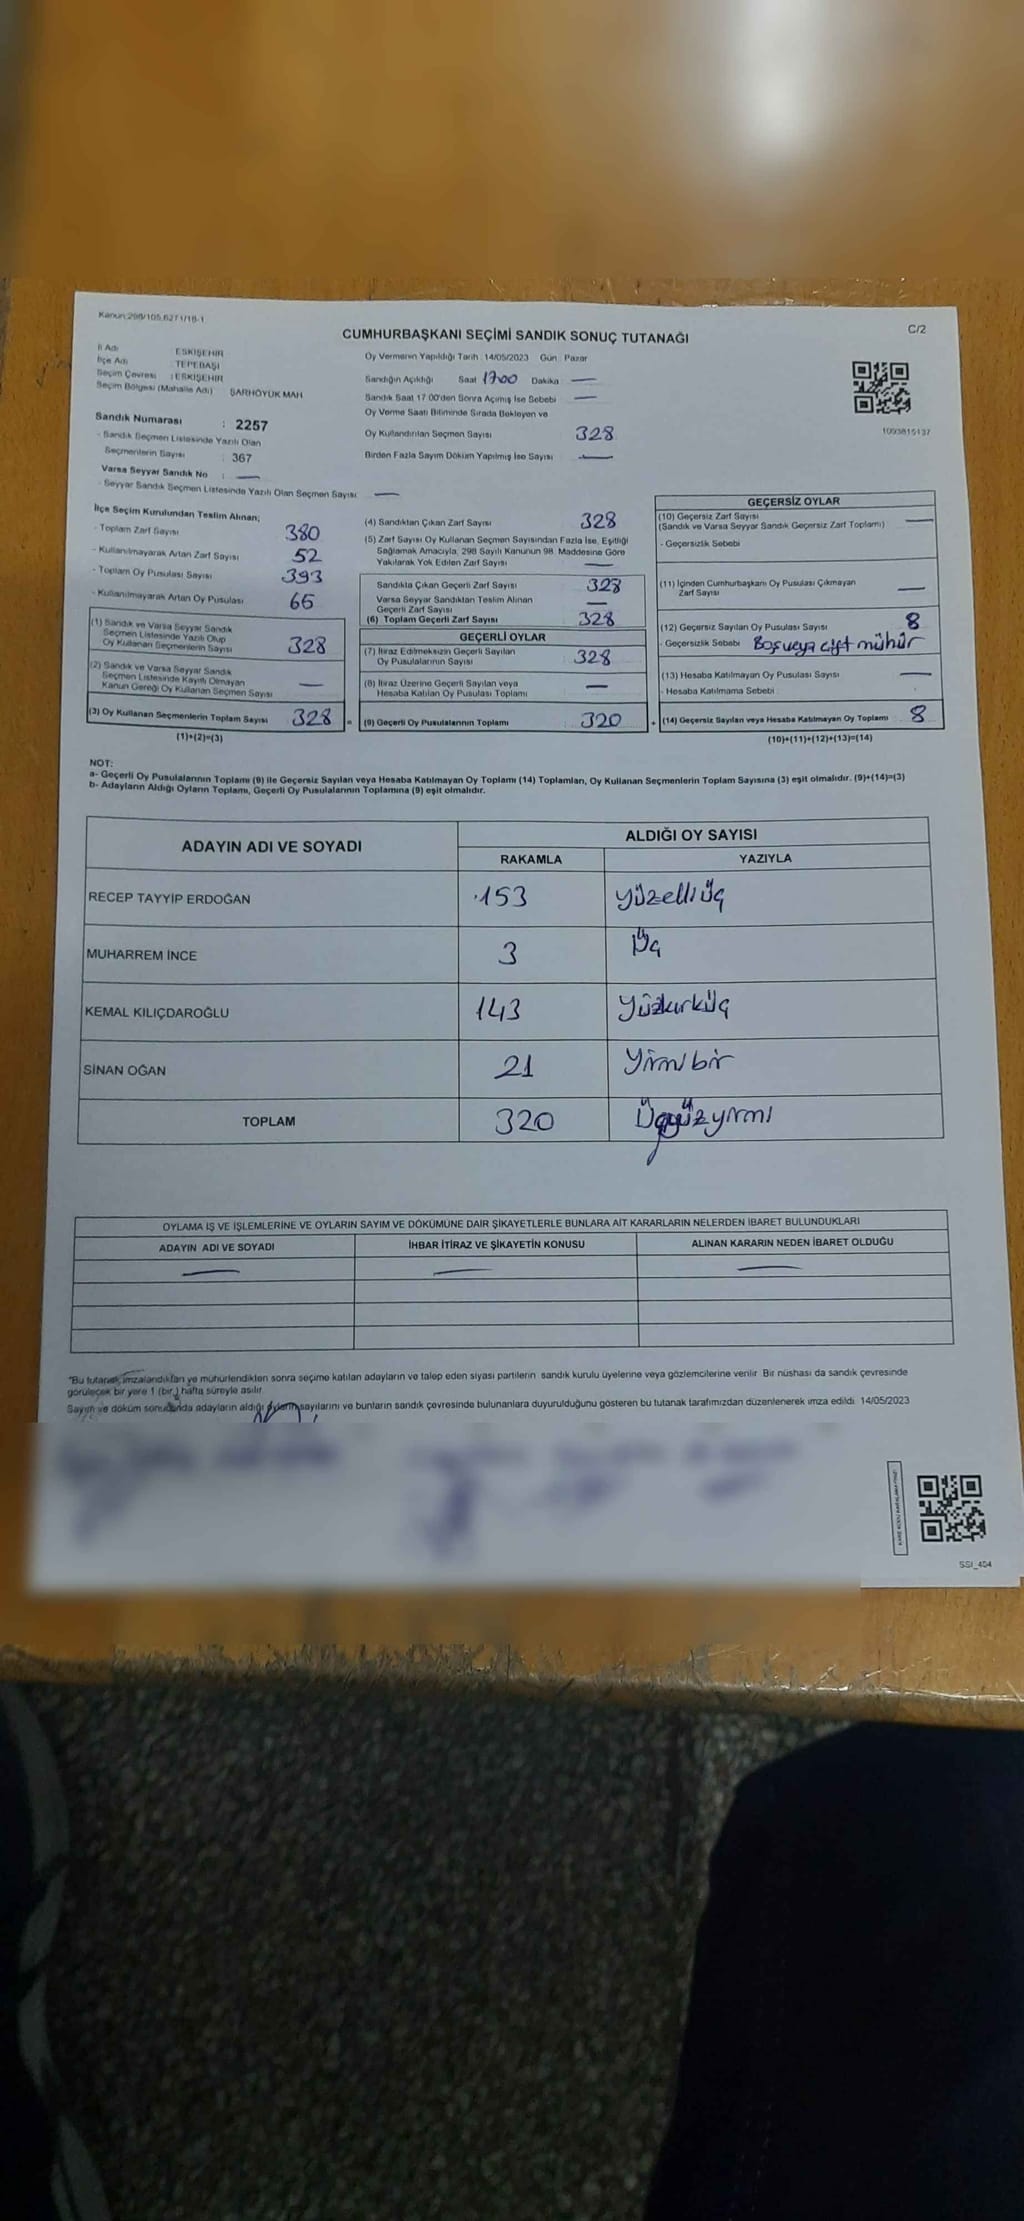 Kanun:298/105,6271/18-1
C/2
CUMHURBAŞKANI SEÇİMİ SANDIK SONUÇ TUTANAĞI
İl Adı : ESKİŞEHİR
İlçe Adı : TEPEBAŞI
Seçim Çevresi : ESKİŞEHİR
Seçim Bölgesi (Mahalle Adı) : ŞARHÖYÜK MAH
Sandık Numarası : 2257
- Sandık Seçmen Listesinde Yazılı Olan
Seçmenlerin Sayısı : 367
Varsa Seyyar Sandık No : —
- Seyyar Sandık Seçmen Listesinde Yazılı Olan Seçmen Sayısı —
Oy Vermenin Yapıldığı Tarih :14/05/2023 Gün : Pazar
Sandığın Açıldığı Saat 1700 Dakika —
Sandık Saat 17.00'den Sonra Açımış İse Sebebi —
Oy Verme Saati Bitiminde Sırada Bekleyen ve
Oy Kullandırılan Seçmen Sayısı 328
Birden Fazla Sayım Döküm Yapılmış İse Sayısı —
1093815137
İlçe Seçim Kurulundan Teslim Alınan;
- Toplam Zarf Sayısı 380
- Kullanılmayarak Artan Zarf Sayısı 52
- Toplam Oy Pusulası Sayısı 393
- Kullanılmayarak Artan Oy Pusulası 65
(1) Sandık ve Varsa Seyyar Sandık
Seçmen Listesinde Yazılı Olup
Oy Kullanan Seçmenlerin Sayısı 328
(2) Sandık ve Varsa Seyyar Sandık
Seçmen Listesinde Kayıtlı Olmayan
Kanun Gereği Oy Kullanan Seçmen Sayısı —
(3) Oy Kullanan Seçmenlerin Toplam Sayısı 328 =
(1)+(2)=(3)
(4) Sandıktan Çıkan Zarf Sayısı 328
(5) Zarf Sayısı Oy Kullanan Seçmen Sayısından Fazla İse, Eşitliği
Sağlamak Amacıyla, 298 Sayılı Kanunun 98. Maddesine Göre
Yakılarak Yok Edilen Zarf Sayısı —
Sandıkta Çıkan Geçerli Zarf Sayısı 328
Varsa Seyyar Sandıktan Teslim Alınan
Geçerli Zarf Sayısı —
(6) Toplam Geçerli Zarf Sayısı 328
GEÇERLİ OYLAR
(7) İtiraz Edilmeksizin Geçerli Sayılan
Oy Pusulalarının Sayısı 328
(8) İtiraz Üzerine Geçerli Sayılan veya
Hesaba Katılan Oy Pusulası Toplamı —
(9) Geçerli Oy Pusulalarının Toplamı 320 +
GEÇERSİZ OYLAR
(10) Geçersiz Zarf Sayısı
(Sandık ve Varsa Seyyar Sandık Geçersiz Zarf Toplamı) —
- Geçersizlik Sebebi
(11) İçinden Cumhurbaşkanı Oy Pusulası Çıkmayan
Zarf Sayısı —
(12) Geçersiz Sayılan Oy Pusulası Sayısı 8
- Geçersizlik Sebebi Boş veya çift mühür
(13) Hesaba Katılmayan Oy Pusulası Sayısı —
- Hesaba Katılmama Sebebi :
(14) Geçersiz Sayılan veya Hesaba Katılmayan Oy Toplamı 8
(10)+(11)+(12)+(13)=(14)
NOT:
a- Geçerli Oy Pusulalarının Toplamı (9) ile Geçersiz Sayılan veya Hesaba Katılmayan Oy Toplamı (14) Toplamları, Oy Kullanan Seçmenlerin Toplam Sayısına (3) eşit olmalıdır. (9)+(14)=(3)
b- Adayların Aldığı Oyların Toplamı, Geçerli Oy Pusulalarının Toplamına (9) eşit olmalıdır.
ADAYIN ADI VE SOYADI ALDIĞI OY SAYISI
RAKAMLA YAZIYLA
RECEP TAYYİP ERDOĞAN 153 yüzelliüç
MUHARREM İNCE 3 Üç
KEMAL KILIÇDAROĞLU 143 yüzkırküç
SİNAN OĞAN 21 yirmibir
TOPLAM 320 Üçyüzyirmi
OYLAMA İŞ VE İŞLEMLERİNE VE OYLARIN SAYIM VE DÖKÜMÜNE DAİR ŞİKAYETLERLE BUNLARA AİT KARARLARIN NELERDEN İBARET BULUNDUKLARI
ADAYIN ADI VE SOYADI İHBAR İTİRAZ VE ŞİKAYETİN KONUSU ALINAN KARARIN NEDEN İBARET OLDUĞU
— — —
*Bu tutanak, imzalandıktan ve mühürlendikten sonra seçime katılan adayların ve talep eden siyasi partilerin sandık kurulu üyelerine veya gözlemcilerine verilir. Bir nüshası da sandık çevresinde
görülecek bir yere 1 (bir ) hafta süreyle asılır.
Sayım ve döküm sonucunda adayların aldığı oyların sayılarını ve bunların sandık çevresinde bulunanlara duyurulduğunu gösteren bu tutanak tarafımızdan düzenlenerek imza edildi. 14/05/2023
SSI_404